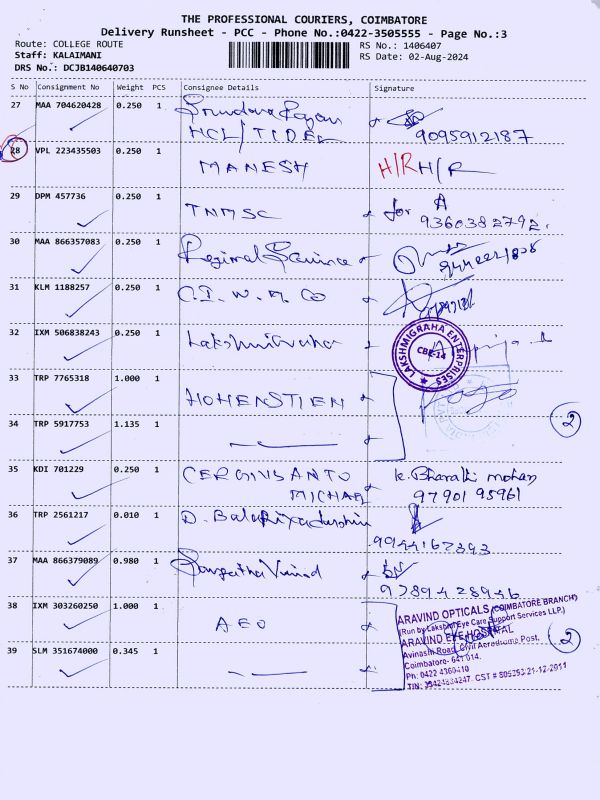 THE PROFESSIONAL COURIERS, COIMBATORE
Delivery Runsheet - PCC - Phone No.:0422-3505555 - Page No.:3
Route: COLLEGE ROUTE
RS No.: 1406407
Staff: KALAIMANI
RS Date: 02-Aug-2024
DRS No.: DCJB140640703
S No Consignment No Weight PCS Consignee Details Signature
27 MAA 704620428 0.250 1
HCL/TIDEL 9095912187
28 VPL 223435503 0.250 1 MANESH H/R H/R
29 DPM 457736 0.250 1 TNMSC for
9360382792.
30 MAA 866357083 0.250 1 Regional
31 KLM 1188257 0.250 1 C.I.W.M.CO
32 IXM 506838243 0.250 1
LAKSHMIGRAHA ENTERPRISES
CBE-14
33 TRP 7765318 1.000 1 HOHENSTIEN
34 TRP 5917753 1.135 1
2
35 KDI 701229 0.250 1 k. Bharathi mohan
MICHAEL 97901 95961
36 TRP 2561217 0.010 1 D.
9944162393
37 MAA 866379089 0.980 1 Sangeetha Vinod
9789428946
38 IXM 303260250 1.000 1 AEO
39 SLM 351674000 0.345 1
ARAVIND OPTICALS (COIMBATORE BRANCH)
(Run by Lakshmi Eye Care Support Services LLP.)
ARAVIND EYE HOSPITAL
Avinashi Road, Civil Aerodrome Post,
Coimbatore- 641 014.
Ph: 0422 4360410
CST # 21-12-2011
2